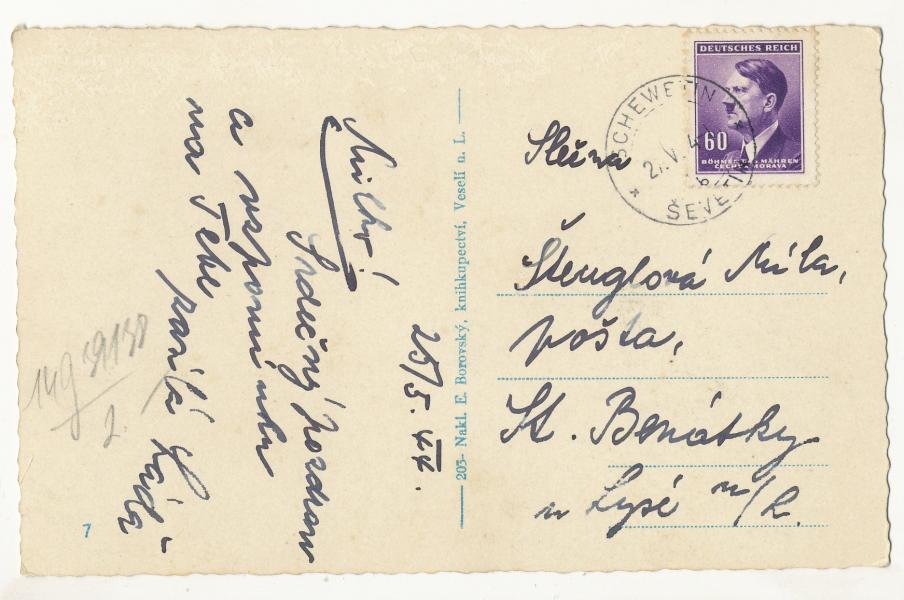 Milko!
Srdečný pozdrav
a vzpomínku
na Tebe
posílá Láďa
25/5. 44.
203- Nakl. E. Borovský, knihkupectví, Veselí n. L.
7
DEUTSCHES REICH
60
BÖHMEN UND MÄHREN
ČECHY A MORAVA
SCHEWETIN
ŠEVĚTÍN
Slečna
Štenglová Míla,
pošta,
St. Benátky
u Lysé n/L.